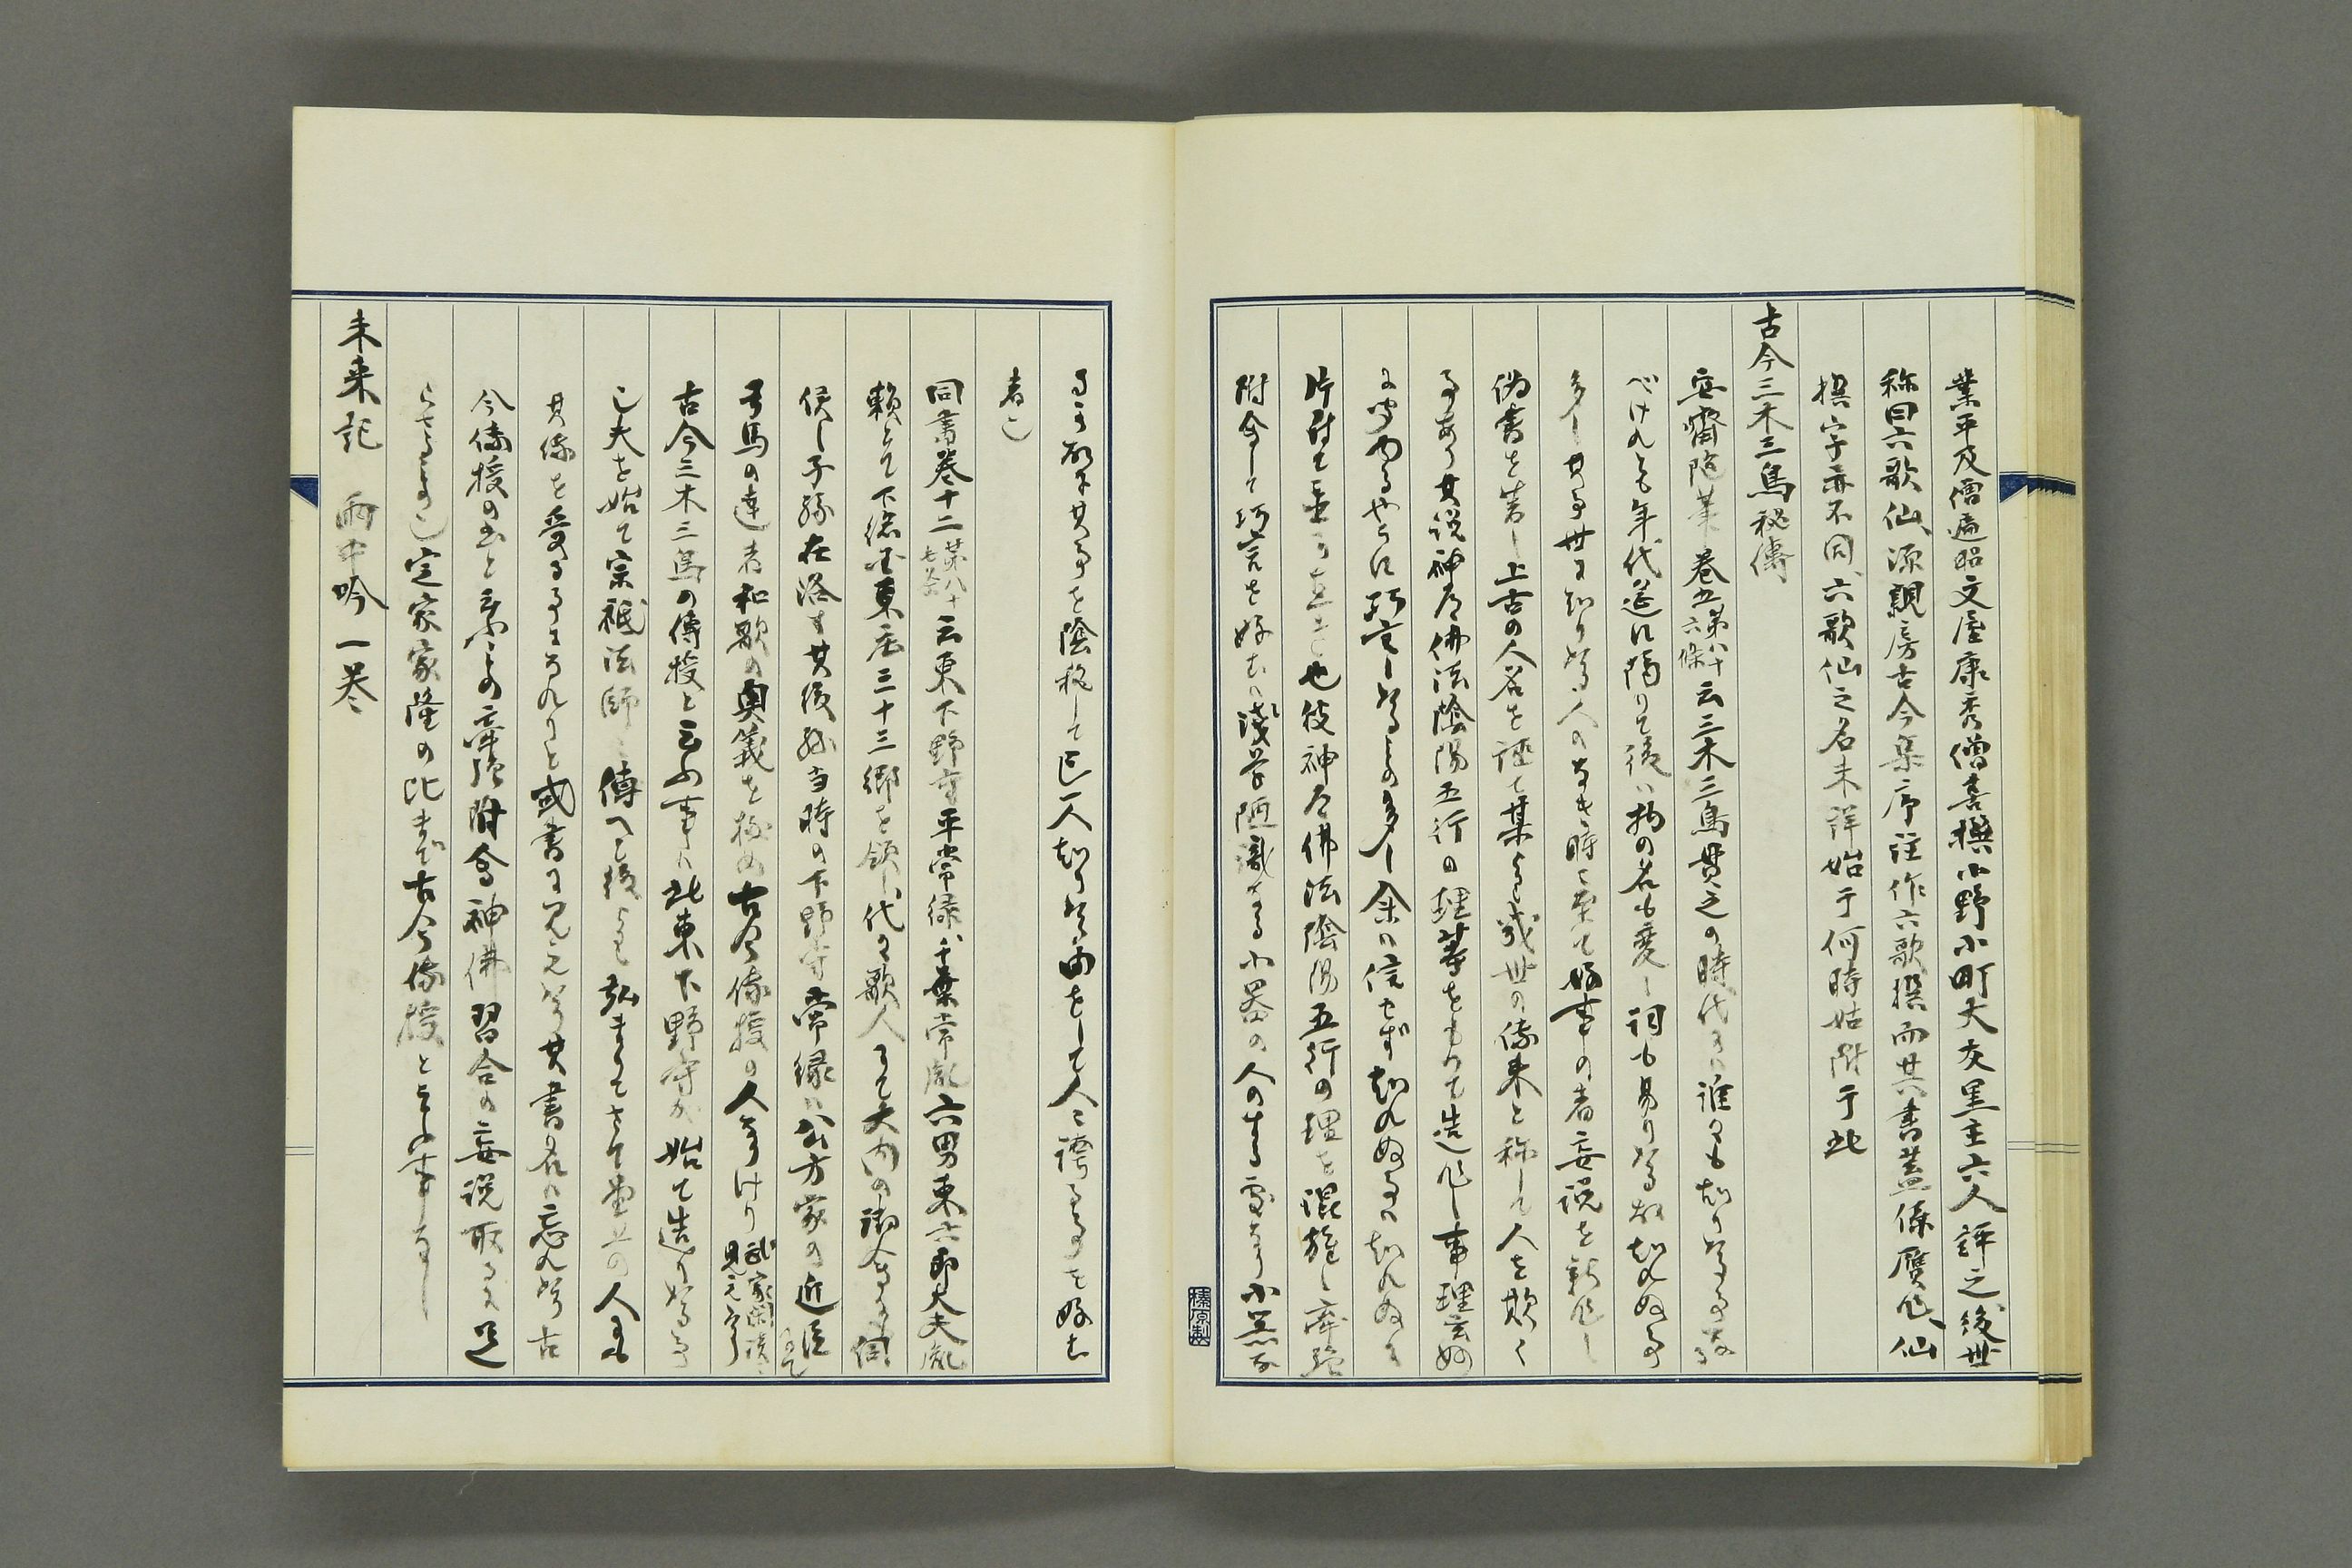 業平及僧遍昭文屋康秀僧喜撰小野小町大友黒主六人評之後世
称曰六歌仙、源親房古今集序註作六歌撰而其書蓋係贋作、仙
撰字亦不同、六歌仙之名未詳始于何時姑附于此
古今三木三鳥秘傳
安齋随筆巻五第八十六條云三木三鳥貫之の時代には誰にも知りたる事なる
べけれとも年代遥に隔りて後は物の名も変し詞も易りたる故知れぬ事
多し其事世に知りたる人のなき時に至て好事の者妄説を新作し
偽書を著し上古の人名を誣て某より幾世の傳来と称して人を欺く
事あり其説神道佛法陰陽五行の理等をもりて造作し事理玄妙
に聞ゆるやうに巧言したるもの多し余は信せず知れぬ事は知れぬに
片付て置く也彼神道佛法陰陽五行の理を混雑し牽強
附会して巧言を好むは浅学陋識なる小器の人のする處なり小器な
る故に其事を陰秘して一人知りたる面をして人に誇る事を好む
者也
同書巻十二第八十七條云東下野守平常縁千葉常胤六男東六郎大夫胤
頼とて下総国東庄三十三郷を領代々歌人にて大内の御会にも伺
候し子孫在洛す其後孫当時の下野守常縁は公方家の近臣にて
弓馬の達者和歌の奥義を極め古今傳授の人なりけり武家閑談に見えたり
古今三木三鳥の傳授と云ふ事は此東下野守が始て造りたる事
也夫を始て宗祇法師に傳へて後より弘まりてさて堂上の人にも
其傳を受る事になれりと或書に見えたり其書名は忘れたり古
今傳授の書と云ふもの牽強附會神佛習合の妄説取るに足
らさるもの也定家家隆の比まで古今傳授と云ふ事なし
未来記　雨中吟　一巻
榛原製